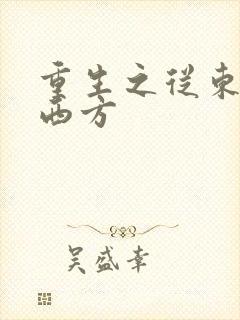 重生之從東
西方
吴盛幸